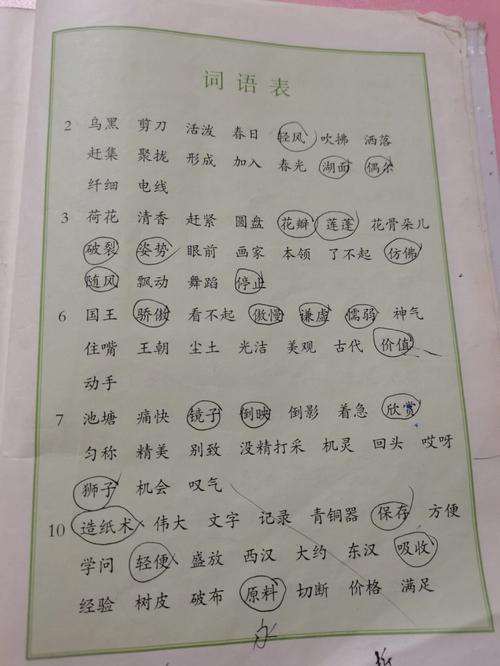 词语表
2 乌黑 剪刀 活泼 春日 轻风 吹拂 洒落
赶集 聚拢 形成 加入 春光 湖面 偶尔
纤细 电线
3 荷花 清香 赶紧 圆盘 花瓣 莲蓬 花骨朵儿
破裂 姿势 眼前 画家 本领 了不起 仿佛
随风 飘动 舞蹈 停止
6 国王 骄傲 看不起 傲慢 谦虚 懦弱 神气
住嘴 王朝 尘土 光洁 美观 古代 价值
动手
7 池塘 痛快 镜子 倒映 倒影 着急 欣赏
匀称 精美 别致 没精打采 机灵 回头 哎呀
狮子 机会 叹气
10 造纸术 伟大 文字 记录 青铜器 保存 方便
学问 轻便 盛放 西汉 大约 东汉 吸收
经验 树皮 破布 原料 切断 价格 满足